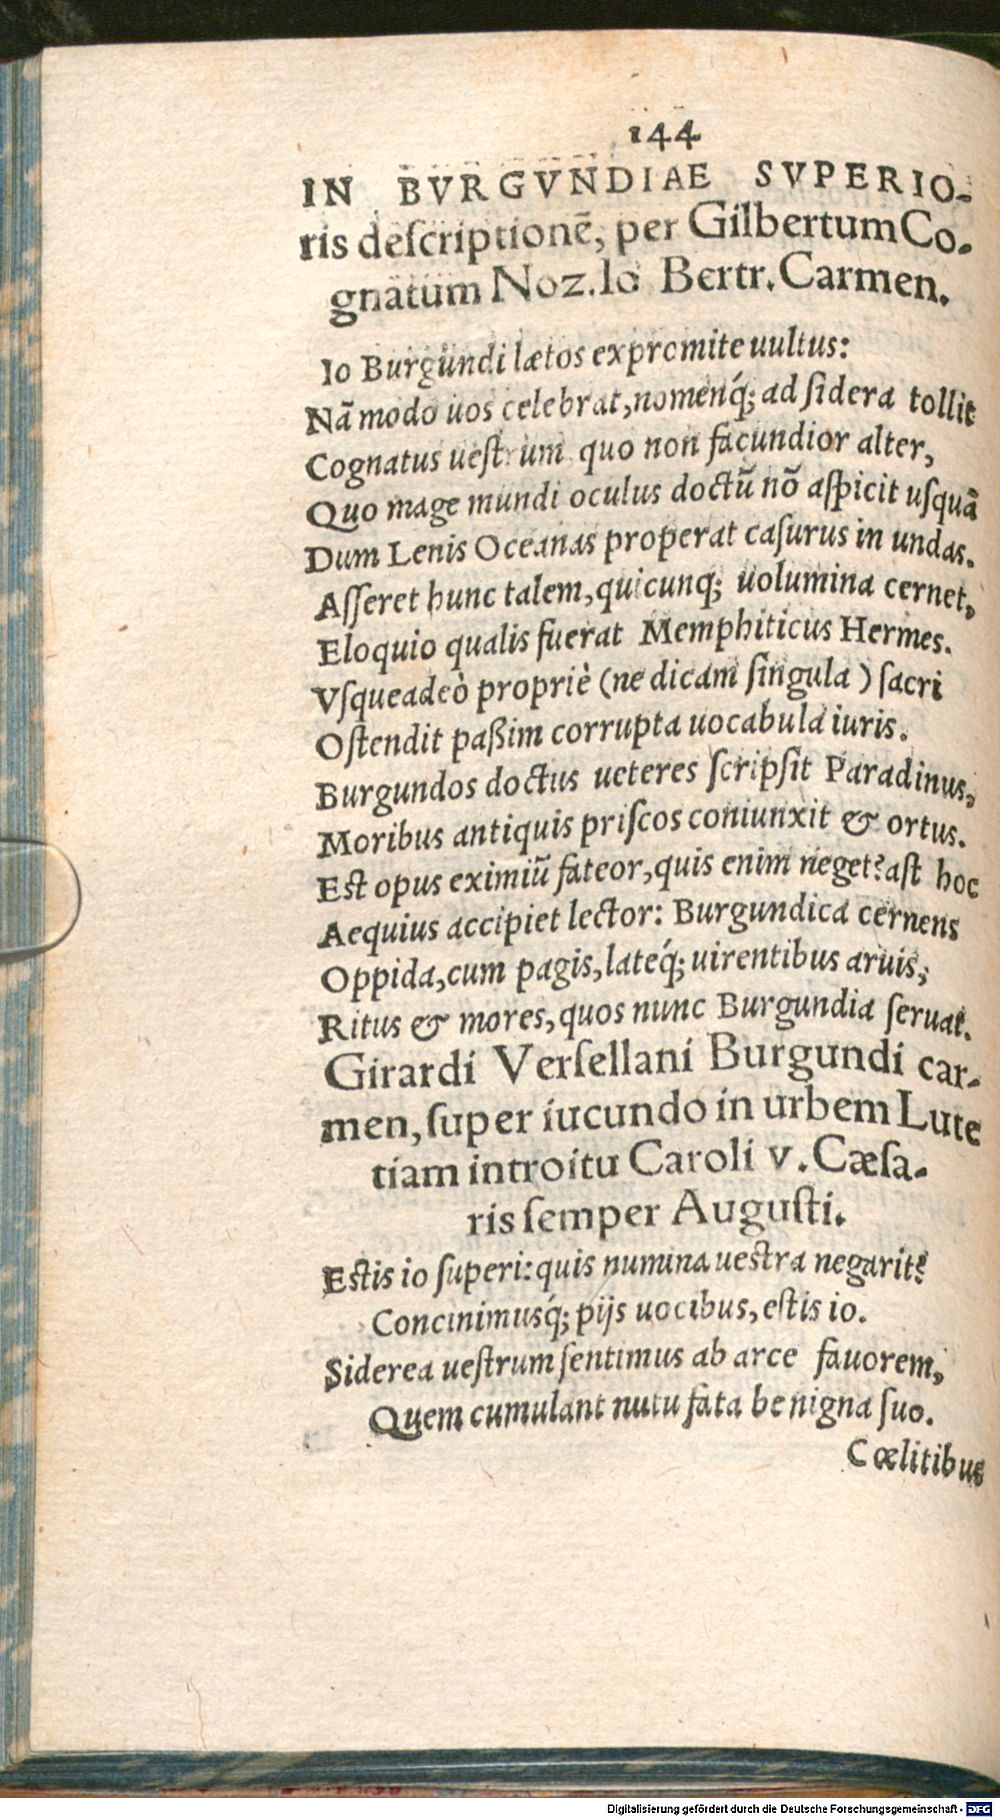 144
IN BVRGVNDIAE SVPERIO-
ris deſcriptionē, per Gilbertum Co-
gnatum Noz. Io Bertr. Carmen.
Io Burgundi lætos expromite uultus:
Nā modo uos celebrat, nomenq́; ad ſidera tollit
Cognatus ueſtrum quo non facundior alter,
Quo mage mundi oculus doctū nō aſpicit uſquā
Dum Lenis Oceanas properat caſurus in undas.
Aſſeret hunc talem, quicunq; uolumina cernet,
Eloquio qualis fuerat Memphiticus Hermes.
Vſqueadeò propriè (ne dicam ſingula) ſacri
Oſtendit paßim corrupta uocabula iuris.
Burgundos doctus ueteres ſcripſit Paradinus,
Moribus antiquis priſcos coniunxit & ortus.
Eſt opus eximiū fateor, quis enim neget? aſt hoc
Aequius accipiet lector: Burgundica cernens
Oppida, cum pagis, lateq́; uirentibus aruis,
Ritus & mores, quos nunc Burgundia ſeruat.
Girardi Verſellani Burgundi car-
men, ſuper iucundo in urbem Lute
tiam introitu Caroli v. Cæſa-
ris ſemper Auguſti.
Eſtis io ſuperi: quis numina ueſtra negarit?
Concinimusq́; pijs uocibus, eſtis io.
Siderea ueſtrum ſentimus ab arce fauorem,
Quem cumulant nutu fata benigna ſuo.
Cœlitibus
Digitalisierung gefördert durch die Deutsche Forschungsgemeinschaft - DFG